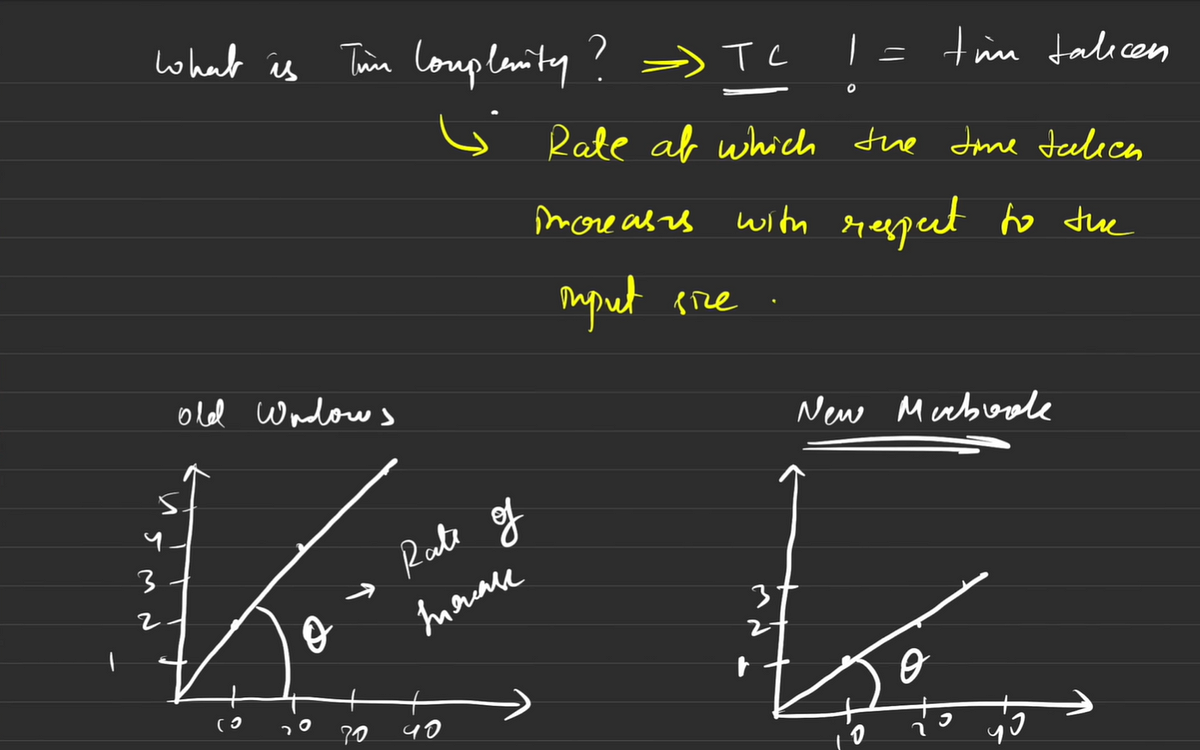 What is Time Complexity? => TC != time taken
↳ Rate at which the time taken
increases with respect to the
input size.
Old Windows
New Macbook
5
4
3
2
1
Rate of
Increase
θ →
10 20 30 40
3
2
1
θ
10 20 40